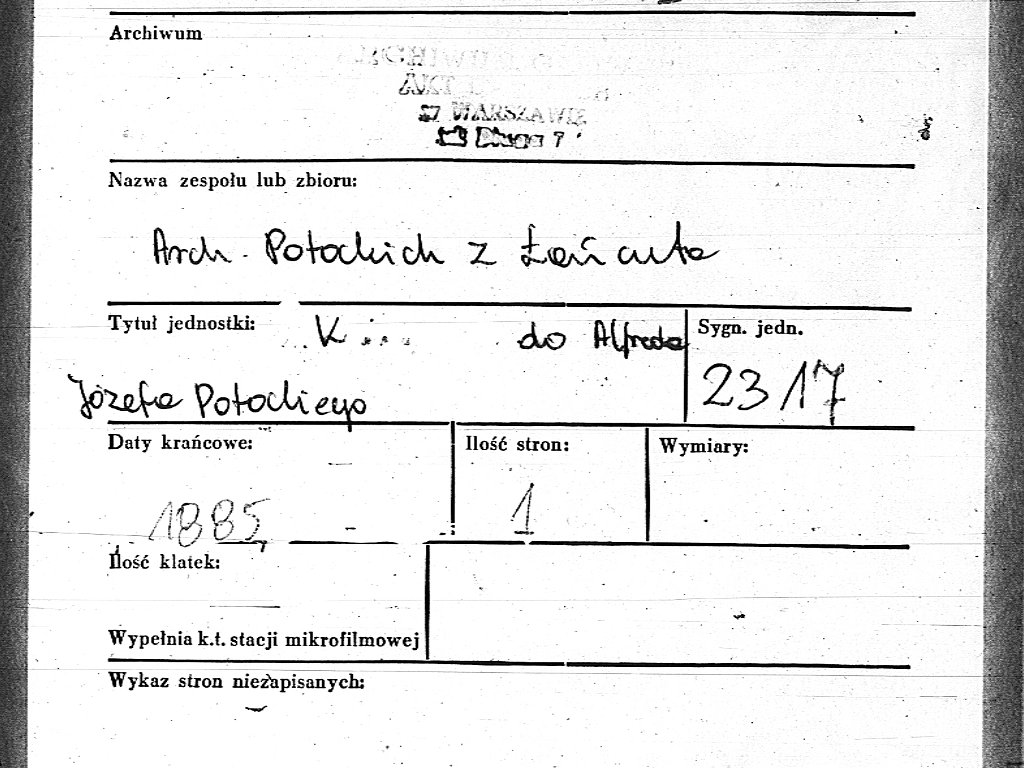 Archiwum
AKT
W WARSZAWIE
Długa 7
Nazwa zespołu lub zbioru:
Arch. Potockich z Łańcuta
Tytuł jednostki: K... do Alfreda
Józefa Potockiego
Sygn. jedn.
2317
Daty krańcowe:
1885
Ilość stron:
1
Wymiary:
Ilość klatek:
Wypełnia k.t. stacji mikrofilmowej
Wykaz stron niezapisanych: